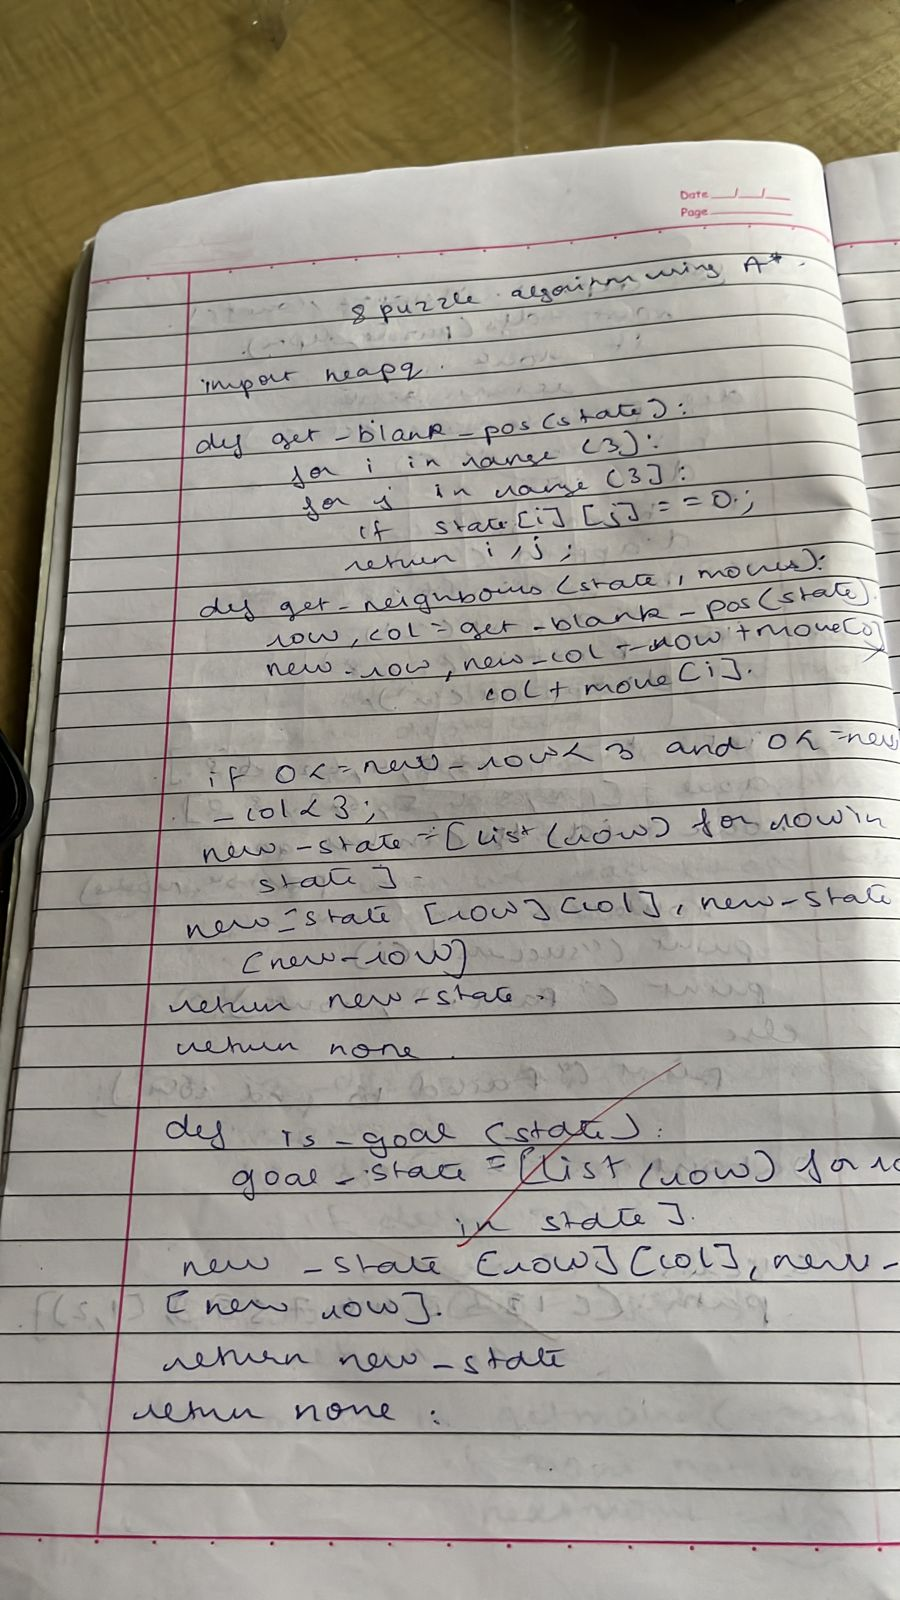 Date __/__/__
Page ________
8 puzzle algorithm using A*.
import heapq.
def get-blank-pos(state):
for i in range (3):
for j in range (3):
if state[i][j]==0:;
return i,j;
def get-neighbours(state, moves):
row, col=get-blank-pos(state)
new-row, new-col=row+move[0]
col+move[i].
if 0<=new-row<3 and 0<=new
-col<3;
new-state=[list(row) for row in
state].
new-state [row][col], new-state
[new-row]
return new-state.
return none.
def is-goal (state):
goal-state=[list(row) for ro
in state].
new-state [row][col], new-
[new row].
return new-state
return none: